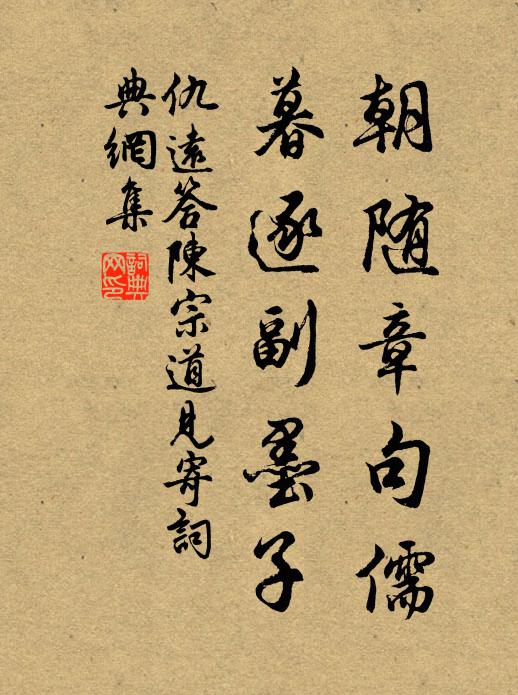 朝随章句儒
暮逐副墨子
仇遠答陳宗道見寄詞
典網集
詞典網印